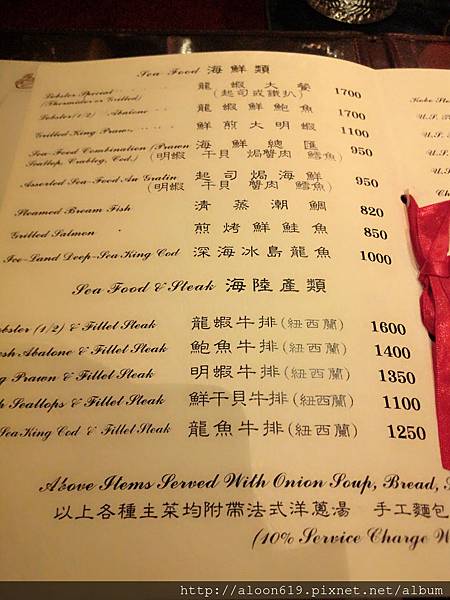 Sea-Food 海鮮類
Lobster Special 龍蝦大餐 1700
(Thermidor or Grilled) (起司或鐵扒)
Lobster(1/2) Abalone 龍蝦鮮鮑魚 1700
Grilled King Prawn 鮮煎大明蝦 1100
Sea-Food Combination (Prawn 海鮮總匯 950
Scallop, Crableg, Cod.) (明蝦 干貝 焗蟹肉 鱈魚)
Assorted Sea-Food Au Gratin 起司焗海鮮 950
(明蝦 干貝 蟹肉 鱈魚)
Steamed Bream Fish 清蒸潮鯛 820
Grilled Salmon 煎烤鮮鮭魚 850
Ice-Land Deep-Sea King Cod 深海冰島龍魚 1000
Sea Food & Steak 海陸產類
Lobster (1/2) & Fillet Steak 龍蝦牛排(紐西蘭) 1600
sh Abalone & Fillet Steak 鮑魚牛排(紐西蘭) 1400
g Prawn & Fillet Steak 明蝦牛排(紐西蘭) 1350
h Scallops & Fillet Steak 鮮干貝牛排(紐西蘭) 1100
Sea King Cod & Fillet Steak 龍魚牛排(紐西蘭) 1250
Above Items Served With Onion Soup, Bread,
以上各種主菜均附帶法式洋蔥湯 手工麵包
(10% Service Charge W
Kobe Steak
U.S. P
U.S.
http://aloon619.pixnet.net/album